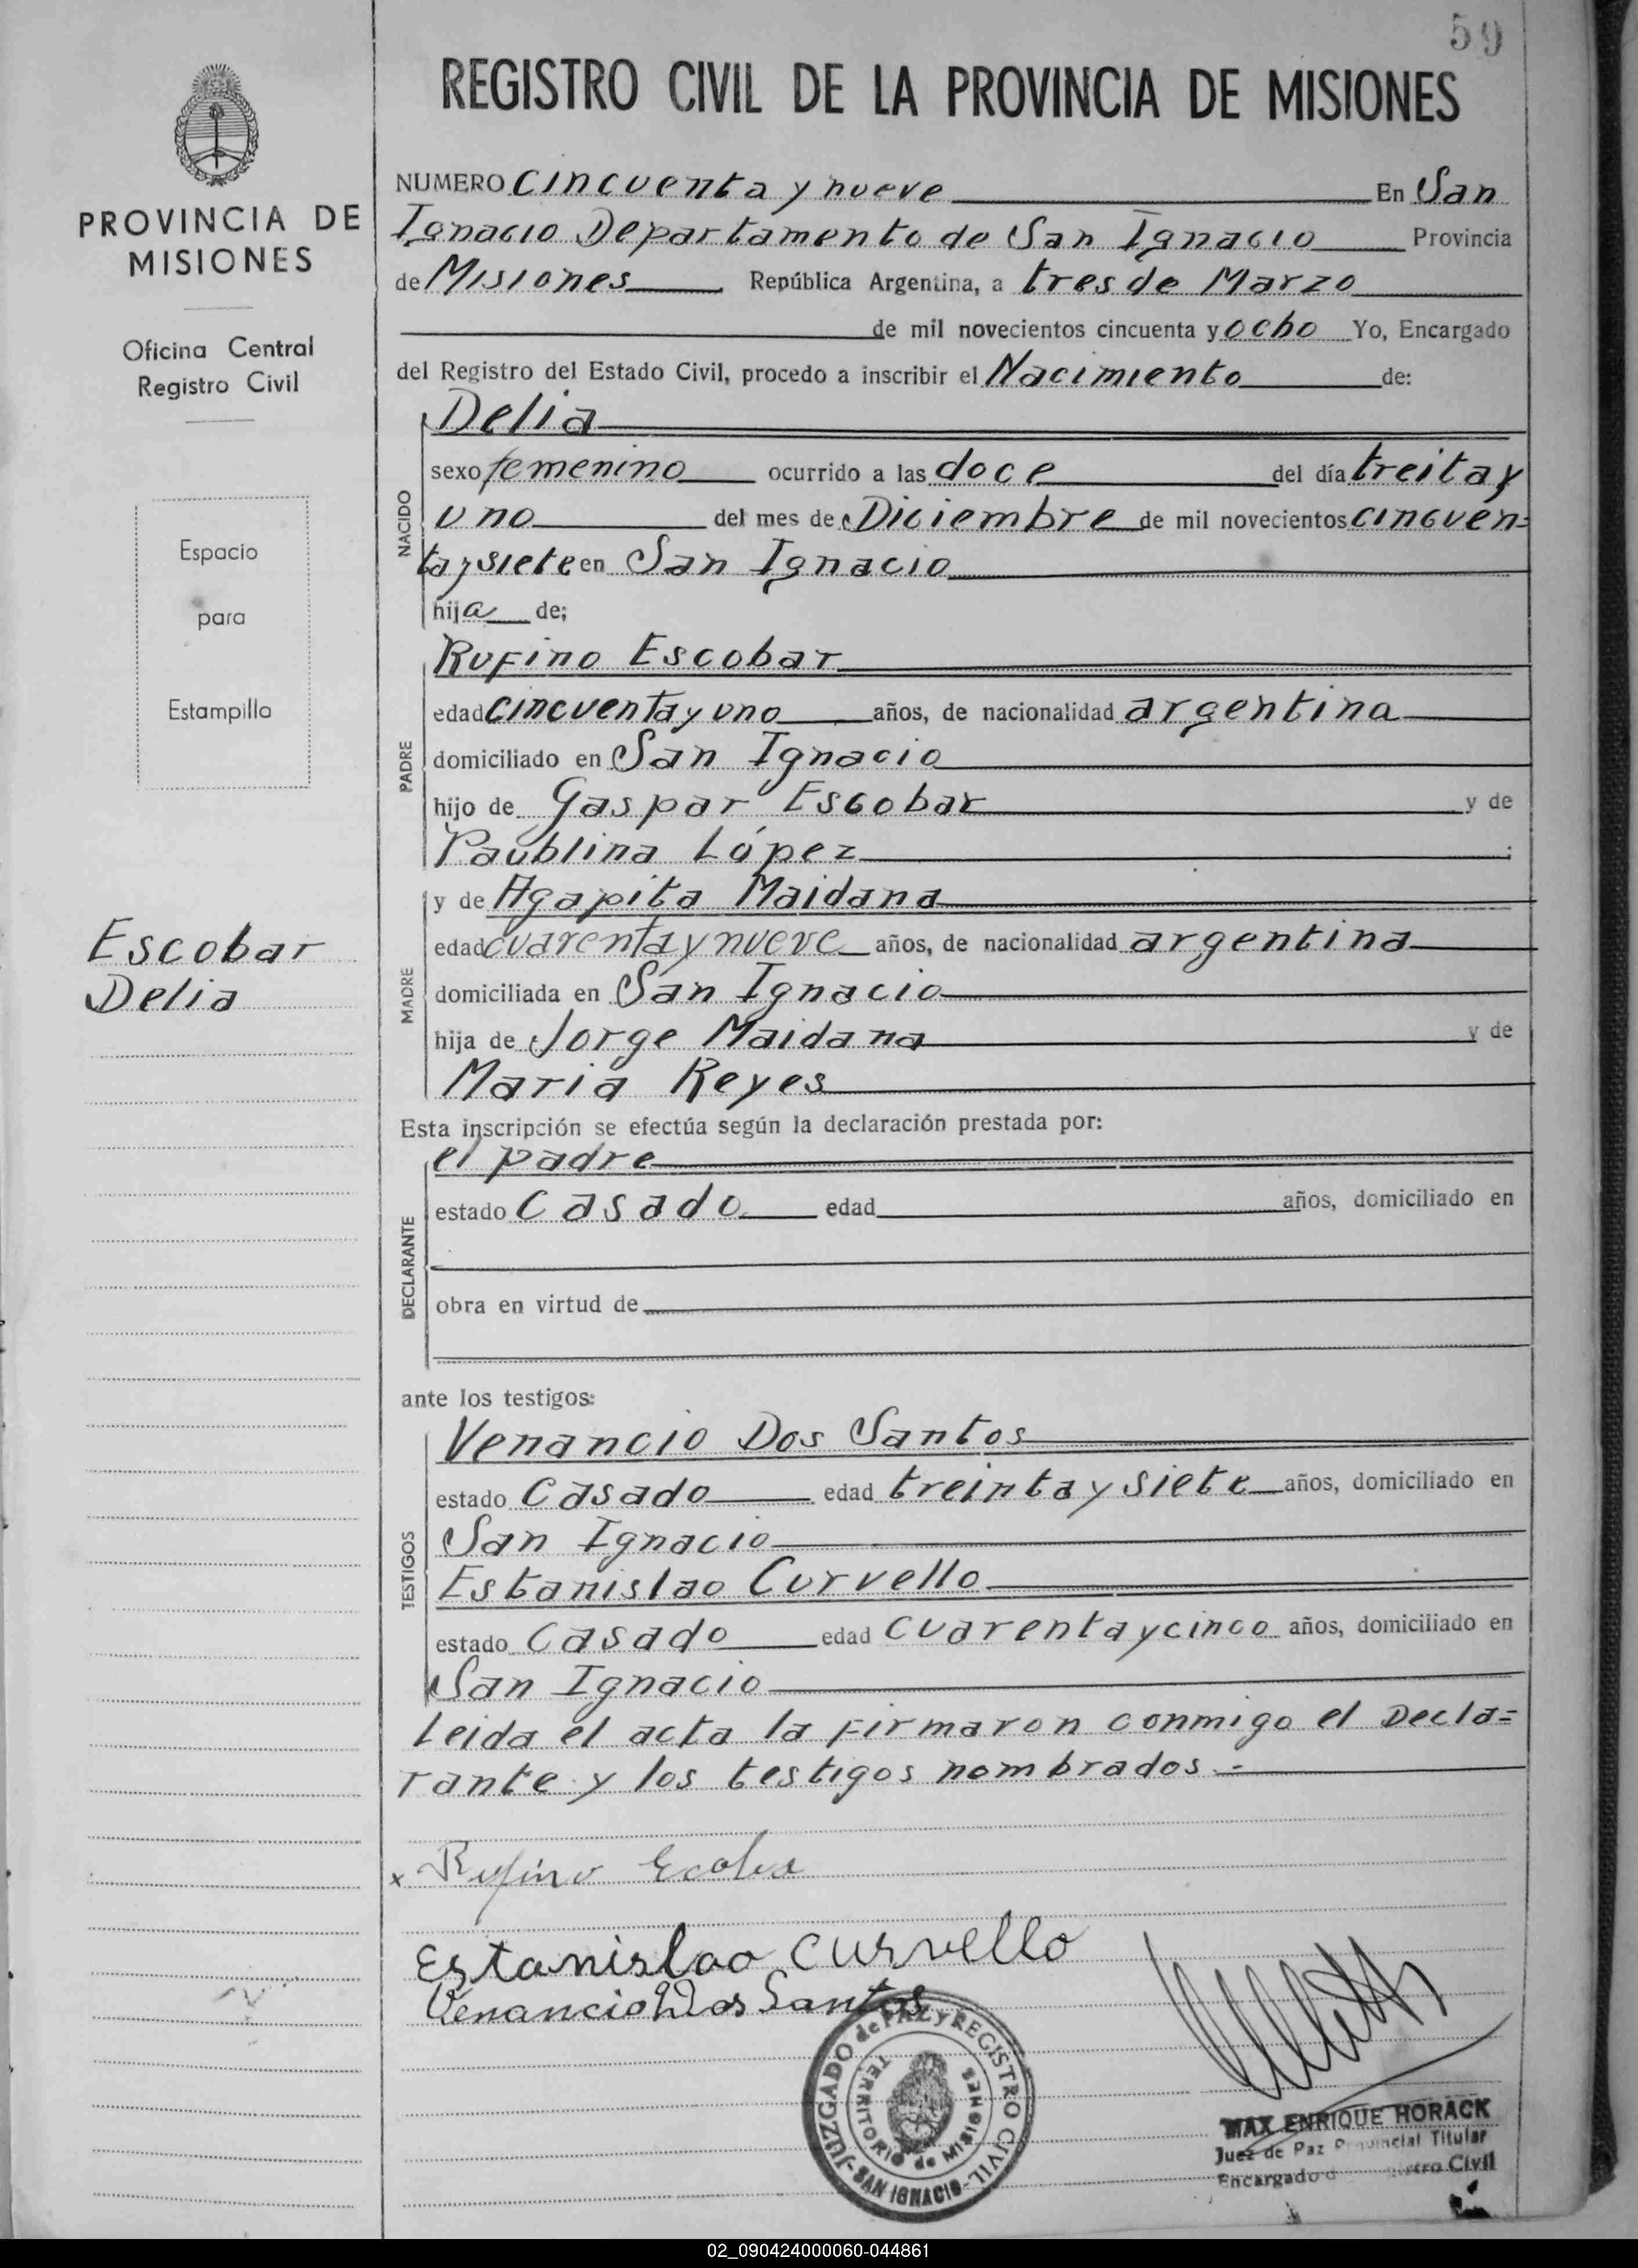 59
REGISTRO CIVIL DE LA PROVINCIA DE MISIONES
PROVINCIA DE
MISIONES
Oficina Central
Registro Civil
Espacio
para
Estampilla
Escobar
Delia
NUMERO Cincuenta y nueve En San
Ignacio Departamento de San Ignacio Provincia
de Misiones República Argentina, a tres de Marzo
de mil novecientos cincuenta y ocho Yo, Encargado
del Registro del Estado Civil, procedo a inscribir el Nacimiento de:
Delia
NACIDO
sexo femenino ocurrido a las doce del día treita y
uno del mes de Diciembre de mil novecientos cincuen=
ta y siete en San Ignacio
hija de;
PADRE
Rufino Escobar
edad cincuenta y uno años, de nacionalidad argentina
domiciliado en San Ignacio
hijo de Gaspar Escobar y de
Paublina López
MADRE
y de Agapita Maidana
edad cuarenta y nueve años, de nacionalidad argentina
domiciliada en San Ignacio
hija de Jorge Maidana y de
Maria Reyes
Esta inscripción se efectúa según la declaración prestada por:
DECLARANTE
el padre
estado Casado edad años, domiciliado en
obra en virtud de
ante los testigos:
TESTIGOS
Venancio Dos Santos
estado Casado edad treinta y siete años, domiciliado en
San Ignacio
Estanislao Curvello
estado Casado edad cuarenta y cinco años, domiciliado en
San Ignacio
Leida el acta la firmaron conmigo el Decla=
rante y los testigos nombrados.-
x Rufino Ecobar
Estanislao Curvello
Venancio Dos Santos
JUZGADO de PAZ y REGISTRO CIVIL
-SAN IGNACIO-
TERRITORIO de MISIONES
MAX ENRIQUE HORACK
Juez de Paz Provincial Titular
Encargado Civil
02_090424000060-044861